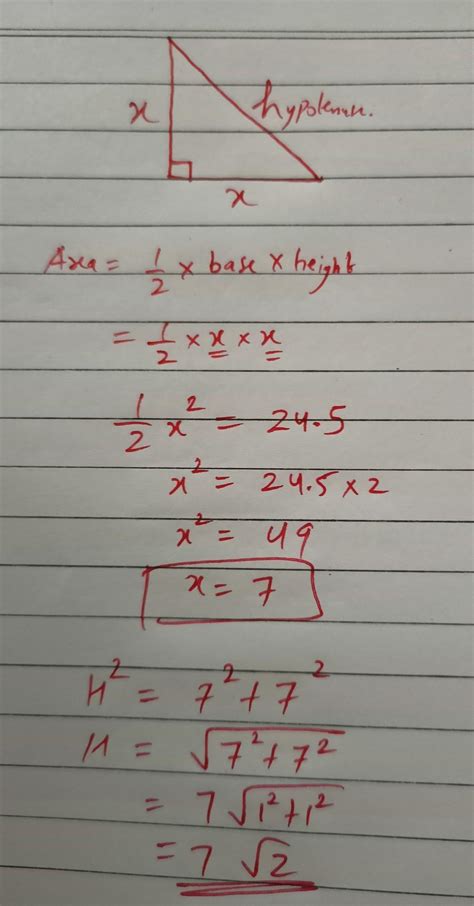 x hypotenuse.
x
Area = 1/2 × base × height
= 1/2 × x × x
1/2 x² = 24.5
x² = 24.5 × 2
x² = 49
x = 7
H² = 7² + 7²
H = √(7² + 7²)
= 7 √(1² + 1²)
= 7 √2